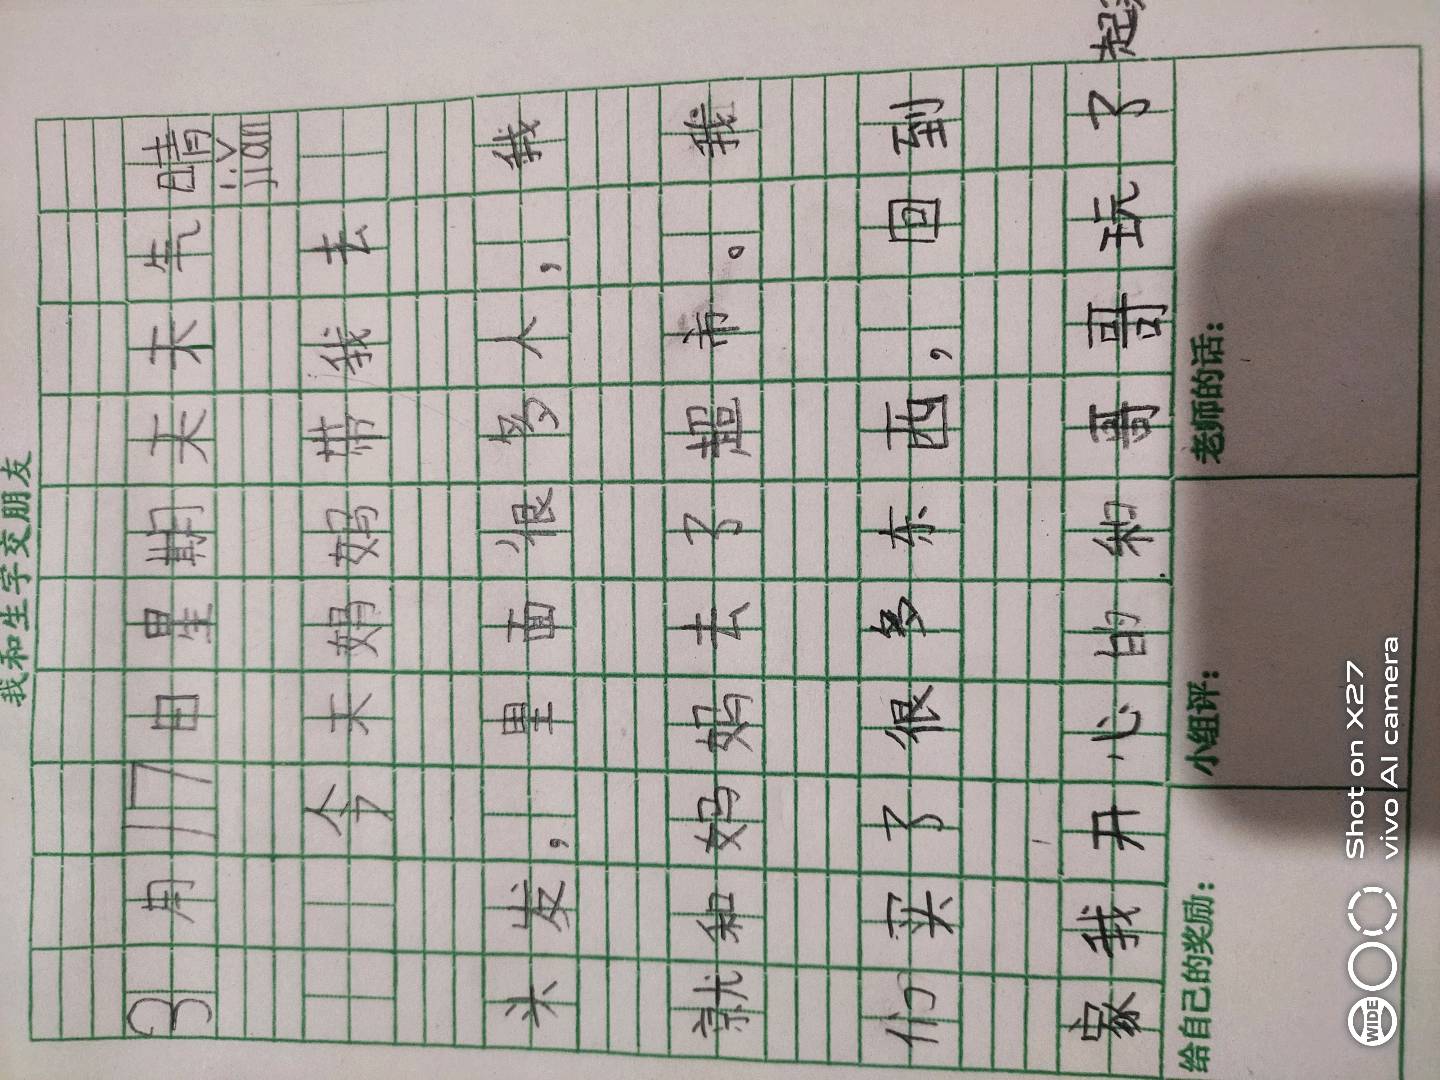 我和生字交朋友
3月17日星期天天气晴
jiǎn
今天妈妈带我去
头发，里面很多人，我
就和妈妈去了超市。我
们买了很多东西，回到
家我开心的和哥哥玩了起
给自己的奖励：
小组评：
老师的话：
WIDE
Shot on X27
vivo AI camera